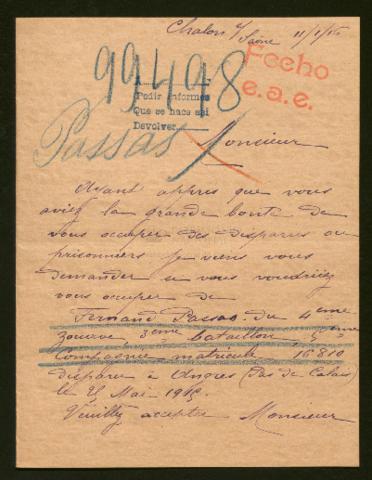 Chalon s/
Saône 11/1/16
99498
Fecho
e.a.e.
Pedir informes
Que se hace asi
Devolver
Passas
Monsieur
Ayant appris que vous
aviez la grande bonté de
vous occuper des disparus ou
prisonniers je viens vous
demander si vous voudriez
vous occuper de
Fernand Passas du 4eme
zouave 3eme bataillon, 5eme
Compagnie matricule 16810
disparu à Angres (Pas de Calais)
le Mai 1915.
Veuillez accepter Monsieur